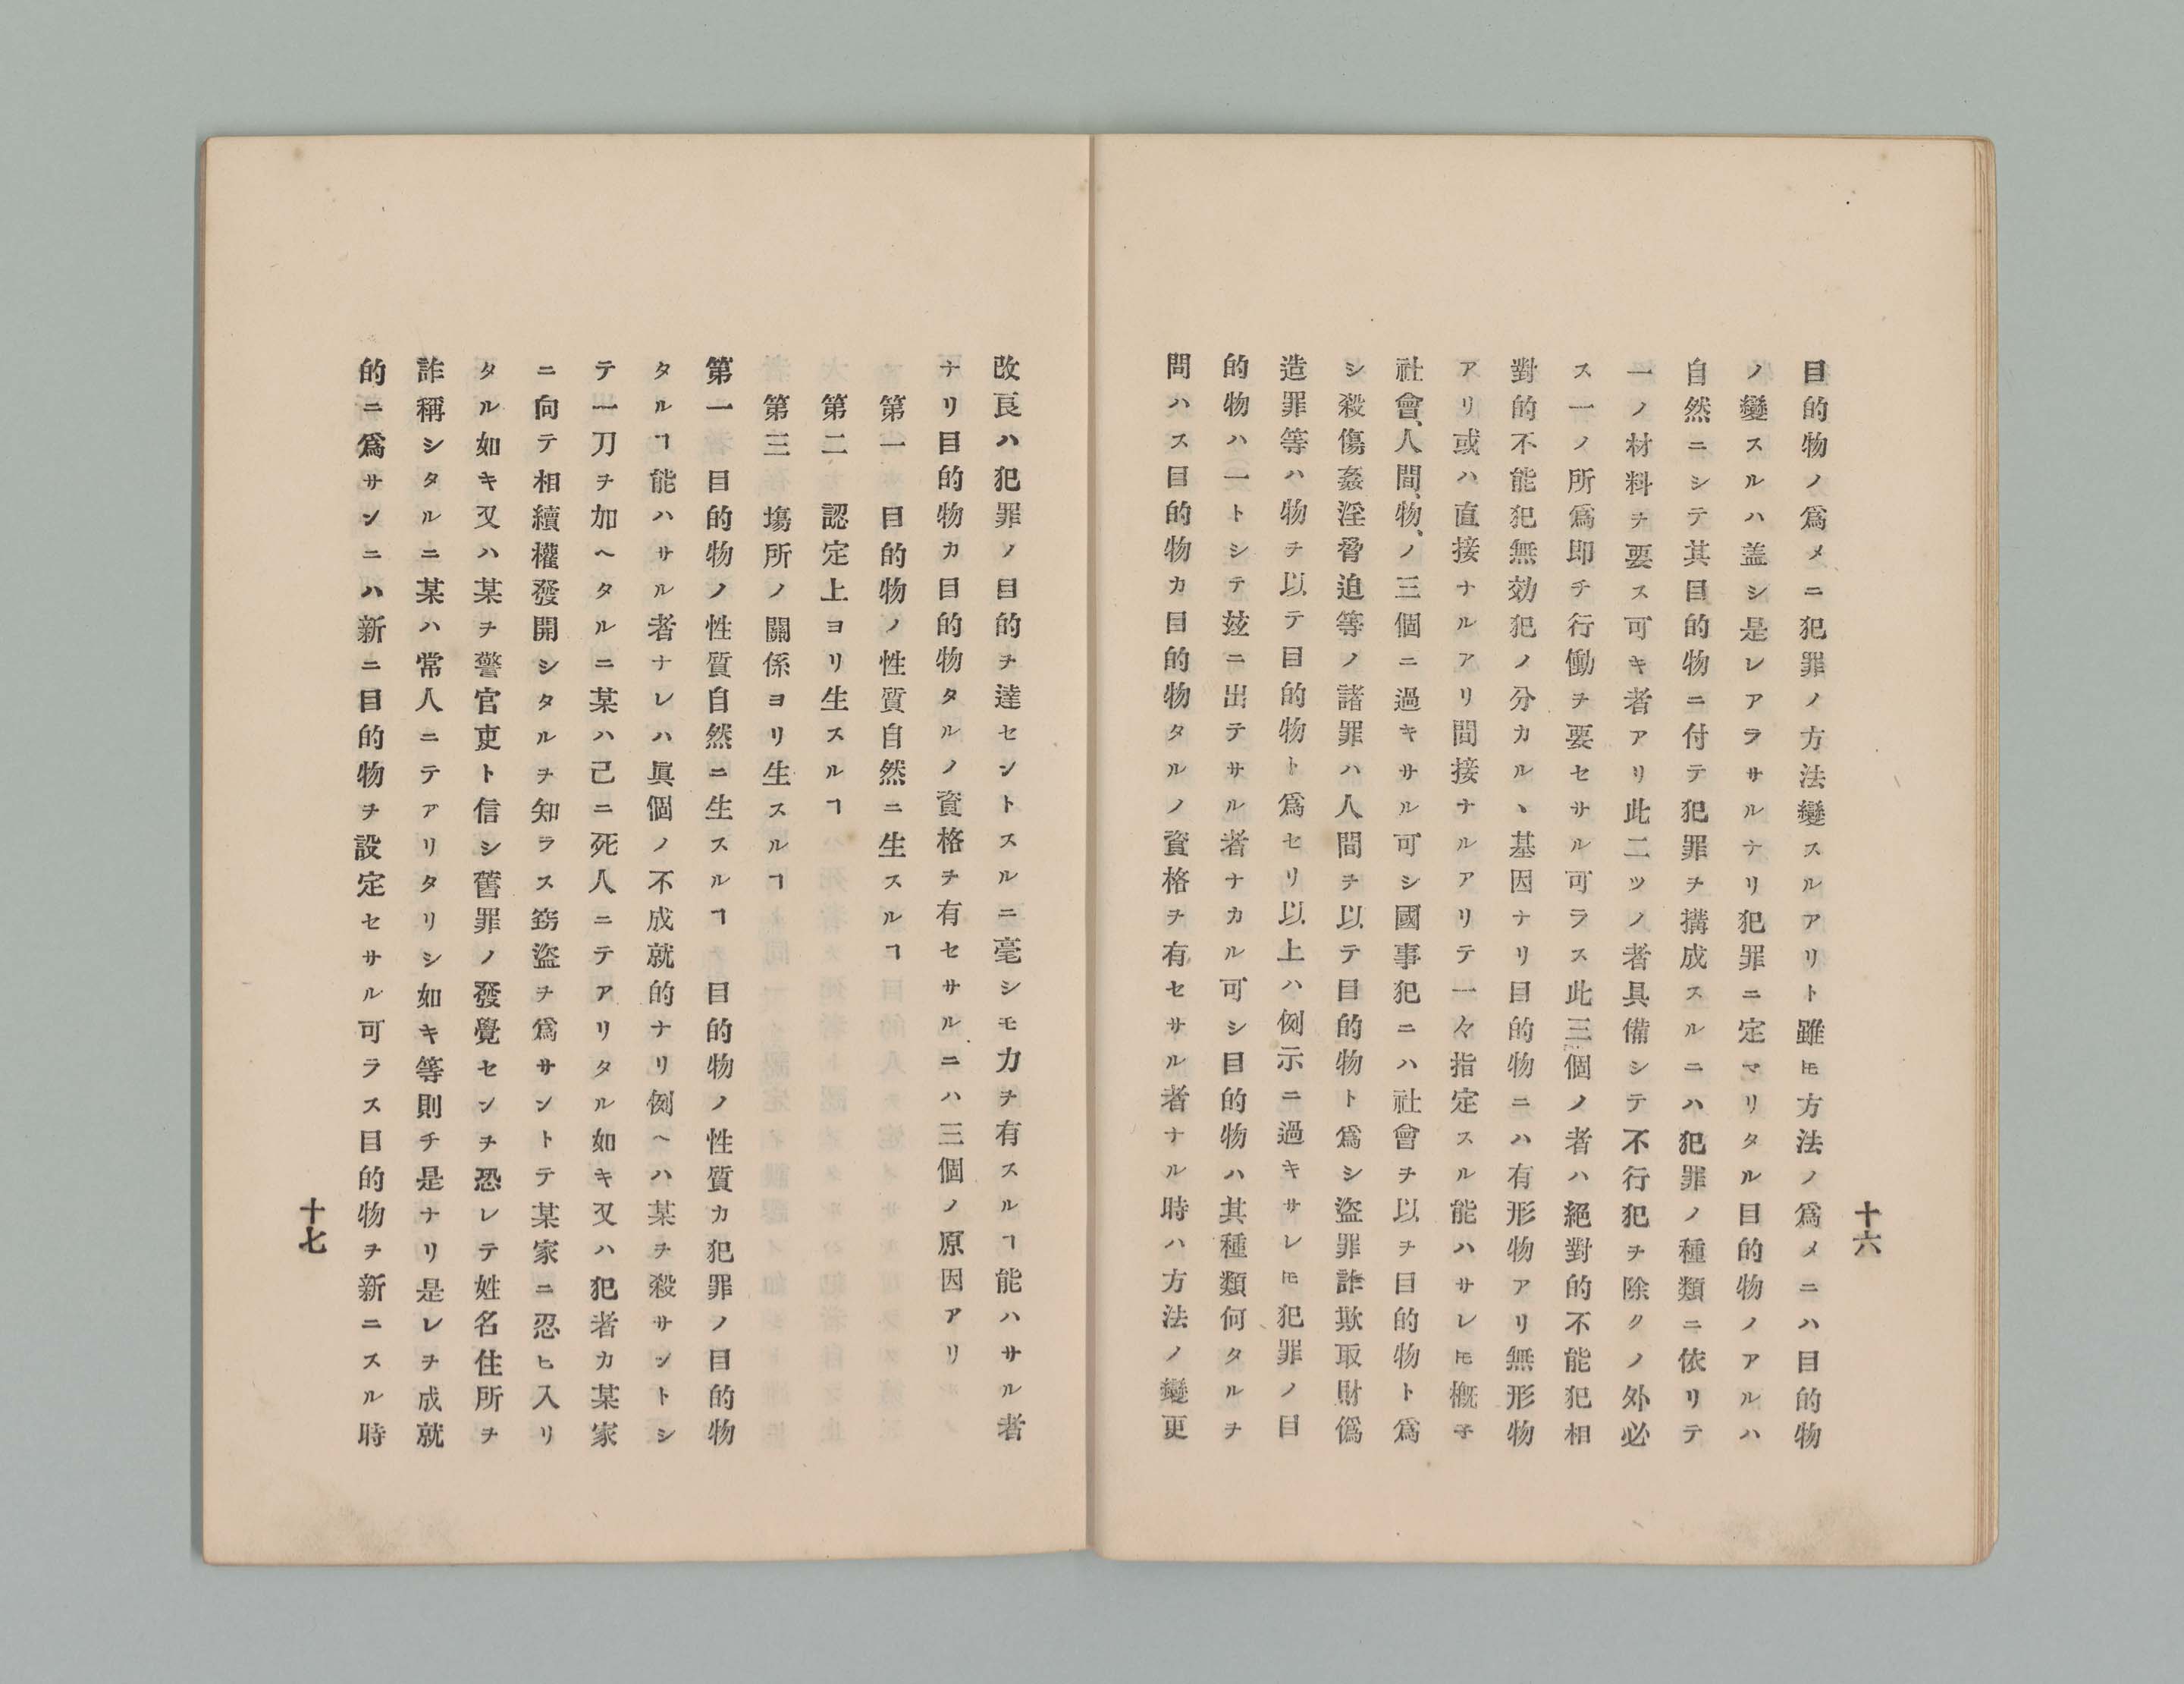 十六
目的物ノ爲メニ犯罪ノ方法變スルアリト雖𪜈方法ノ爲メニハ目的物
ノ變スルハ盖シ是レアラサルナリ犯罪ニ定マリタル目的物ノアルハ
自然ニシテ其目的物ニ付テ犯罪ヲ搆成スルニハ犯罪ノ種類ニ依リテ
一ノ材料ヲ要ス可キ者アリ此二ツノ者具備シテ不行犯ヲ除クノ外必
ス一ノ所爲即チ行働ヲ要セサル可ラス此三個ノ者ハ絕對的不能犯相
對的不能犯無効犯ノ分カルヽ基因ナリ目的物ニハ有形物アリ無形物
アリ或ハ直接ナルアリ間接ナルアリテ一々指定スル能ハサレ𪜈槪子
社會、人間、物、ノ三個ニ過キサル可シ國事犯ニハ社會ヲ以ヲ目的物ト爲
シ殺傷姦淫脅迫等ノ諸罪ハ人間ヲ以テ目的物ト爲シ盜罪詐欺取財僞
造罪等ハ物ヲ以テ目的物ト爲セリ以上ハ例示ニ過キサレ𪜈犯罪ノ目
的物ハ一トシテ玆ニ出テサル者ナカル可シ目的物ハ其種類何タルヲ
問ハス目的物カ目的物タルノ資格ヲ有セサル者ナル時ハ方法ノ變更
改良ハ犯罪ノ目的ヲ達セントスルニ毫シモ力ヲ有スルヿ能ハサル者
ナリ目的物カ目的物タルノ資格ヲ有セサルニハ三個ノ原因アリ
第一 目的物ノ性質自然ニ生スルヿ
第二 認定上ヨリ生スルヿ
第三 塲所ノ關係ヨリ生スルヿ
第一 目的物ノ性質自然ニ生スルヿ 目的物ノ性質カ犯罪ノ目的物
タルヿ能ハサル者ナレハ眞個ノ不成就的ナリ例ヘハ某ヲ殺サントシ
テ一刀ヲ加ヘタルニ某ハ己ニ死人ニテアリタル如キ又ハ犯者カ某家
ニ向テ相續權發開シタルヲ知ラス窃盜ヲ爲サントテ某家ニ忍ヒ入リ
タル如キ又ハ某ヲ警官吏ト信シ舊罪ノ發覺センヲ恐レテ姓名住所ヲ
詐稱シタルニ某ハ常人ニテアリタリシ如キ等則チ是ナリ是レヲ成就
的ニ爲サンニハ新ニ目的物ヲ設定セサル可ラス目的物ヲ新ニスル時
十七